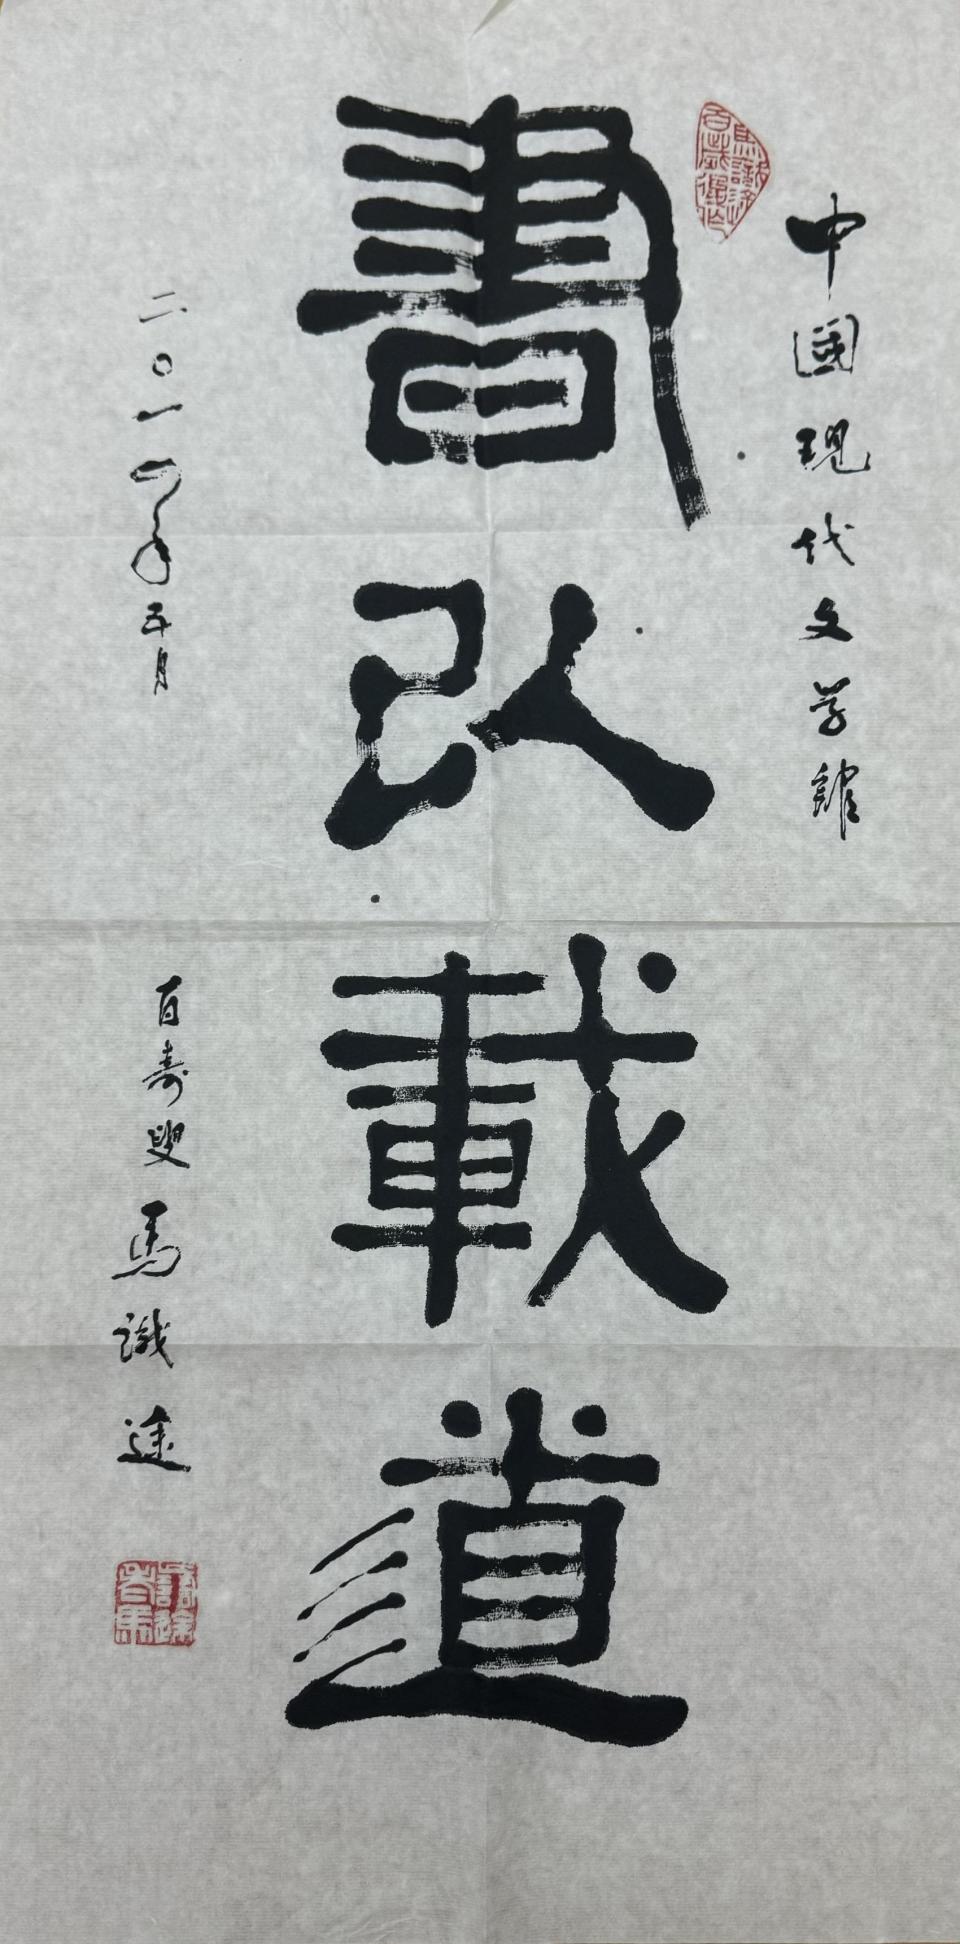 中國現代文学館
書以載道
二〇一四年五月
百壽叟馬識途